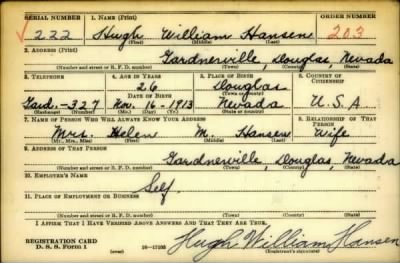 SERIAL NUMBER 1. NAME (Print) ORDER NUMBER
222 Hugh William Hansen 203
(First) (Middle) (Last)
2. ADDRESS (Print)
Gardnerville, Douglas, Nevada
(Number and street or R. F. D. number) (Town) (County) (State)
3. TELEPHONE 4. AGE IN YEARS 5. PLACE OF BIRTH 6. COUNTRY OF CITIZENSHIP
26 Douglas
DATE OF BIRTH (Town or county)
Gard.-327 Nov. 16-1913 Nevada U.S.A
(Exchange) (Number) (Mo.) (Day) (Yr.) (State or country)
7. NAME OF PERSON WHO WILL ALWAYS KNOW YOUR ADDRESS 8. RELATIONSHIP OF THAT PERSON
Mrs. Helen M. Hansen Wife
(Mr., Mrs., Miss) (First) (Middle) (Last)
9. ADDRESS OF THAT PERSON
Gardnerville, Douglas, Nevada
(Number and street or R. F. D. number) (Town) (County) (State)
10. EMPLOYER'S NAME
Self.
11. PLACE OF EMPLOYMENT OR BUSINESS
(Number and street or R. F. D. number) (Town) (County) (State)
I AFFIRM THAT I HAVE VERIFIED ABOVE ANSWERS AND THAT THEY ARE TRUE.
REGISTRATION CARD
D. S. S. Form 1 16-17105 Hugh William Hansen
(Registrant's signature)